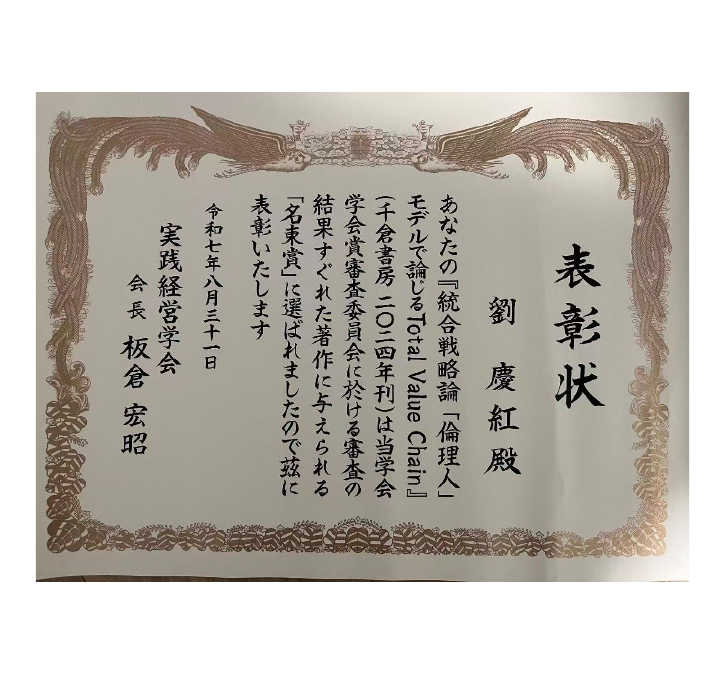 表彰状
劉 慶紅 殿
あなたの『統合戦略論「倫理人」
モデルで論じるTotal Value Chain』
(千倉書房 二〇二四年刊)は当学会
学会賞審査委員会に於ける審査の
結果すぐれた著作に与えられる
「名東賞」に選ばれましたので茲に
表彰いたします
令和七年八月三十一日
実践経営学会
会長 板倉 宏昭